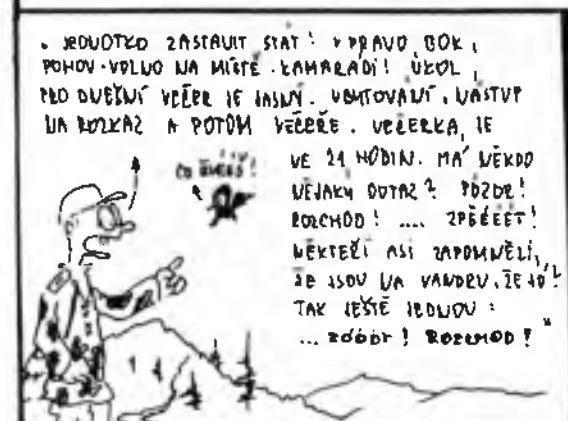 „ JEDNOTKO ZASTAVIT STÁT! V PRAVO BOK,
POHOV. VOLNO NA MÍSTĚ. KAMARÁDI! ÚKOL
PRO DNEŠNÍ VEČER JE JASNÝ. UBYTOVÁNÍ, NÁSTUP
NA ROZKAZ A POTOM VEČEŘE. VEČERKA JE
VE 21 HODIN. MÁ NĚKDO
NĚJAKÝ DOTAZ? POZOR!
ROZCHOD! .... ZPĚÉÉÉT!
NĚKTEŘÍ ASI ZAPOMNĚLI,
ŽE JSOU NA VANDRU, ŽE JO?
TAK JEŠTĚ JEDNOU:
... ZÓÓÓR! ROZCHOD!"
CO